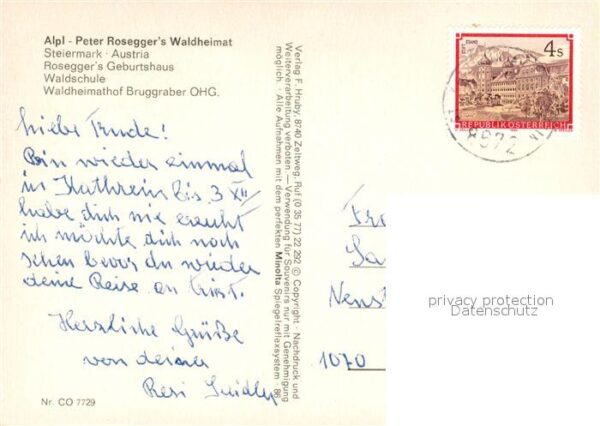 Alpl - Peter Rosegger's Waldheimat
Steiermark · Austria
Rosegger's Geburtshaus
Waldschule
Waldheimathof Bruggraber OHG.
liebe Trude!
Bin wieder einmal
in Kathrein bis 3 XII
habe dich nie
ich möchte dich noch
sehen bevor du wieder
deine Reise an
Herzliche Grüße
von deiner
Resi
Nr. CO 7729
Verlag F. Hruby, 8740 Zeltweg, Ruf (0 35 77) 22 292 © Copyright · Nachdruck und
Weiterverarbeitung verboten. — Verwendung für Souvenirs nur mit Genehmigung
möglich. · Alle Aufnahmen mit dem perfekten Minolta Spiegelreflexsystem · 86
4s
REPUBLIK ÖSTERREICH
8972
Nenst
1070
privacy protection
Datenschutz